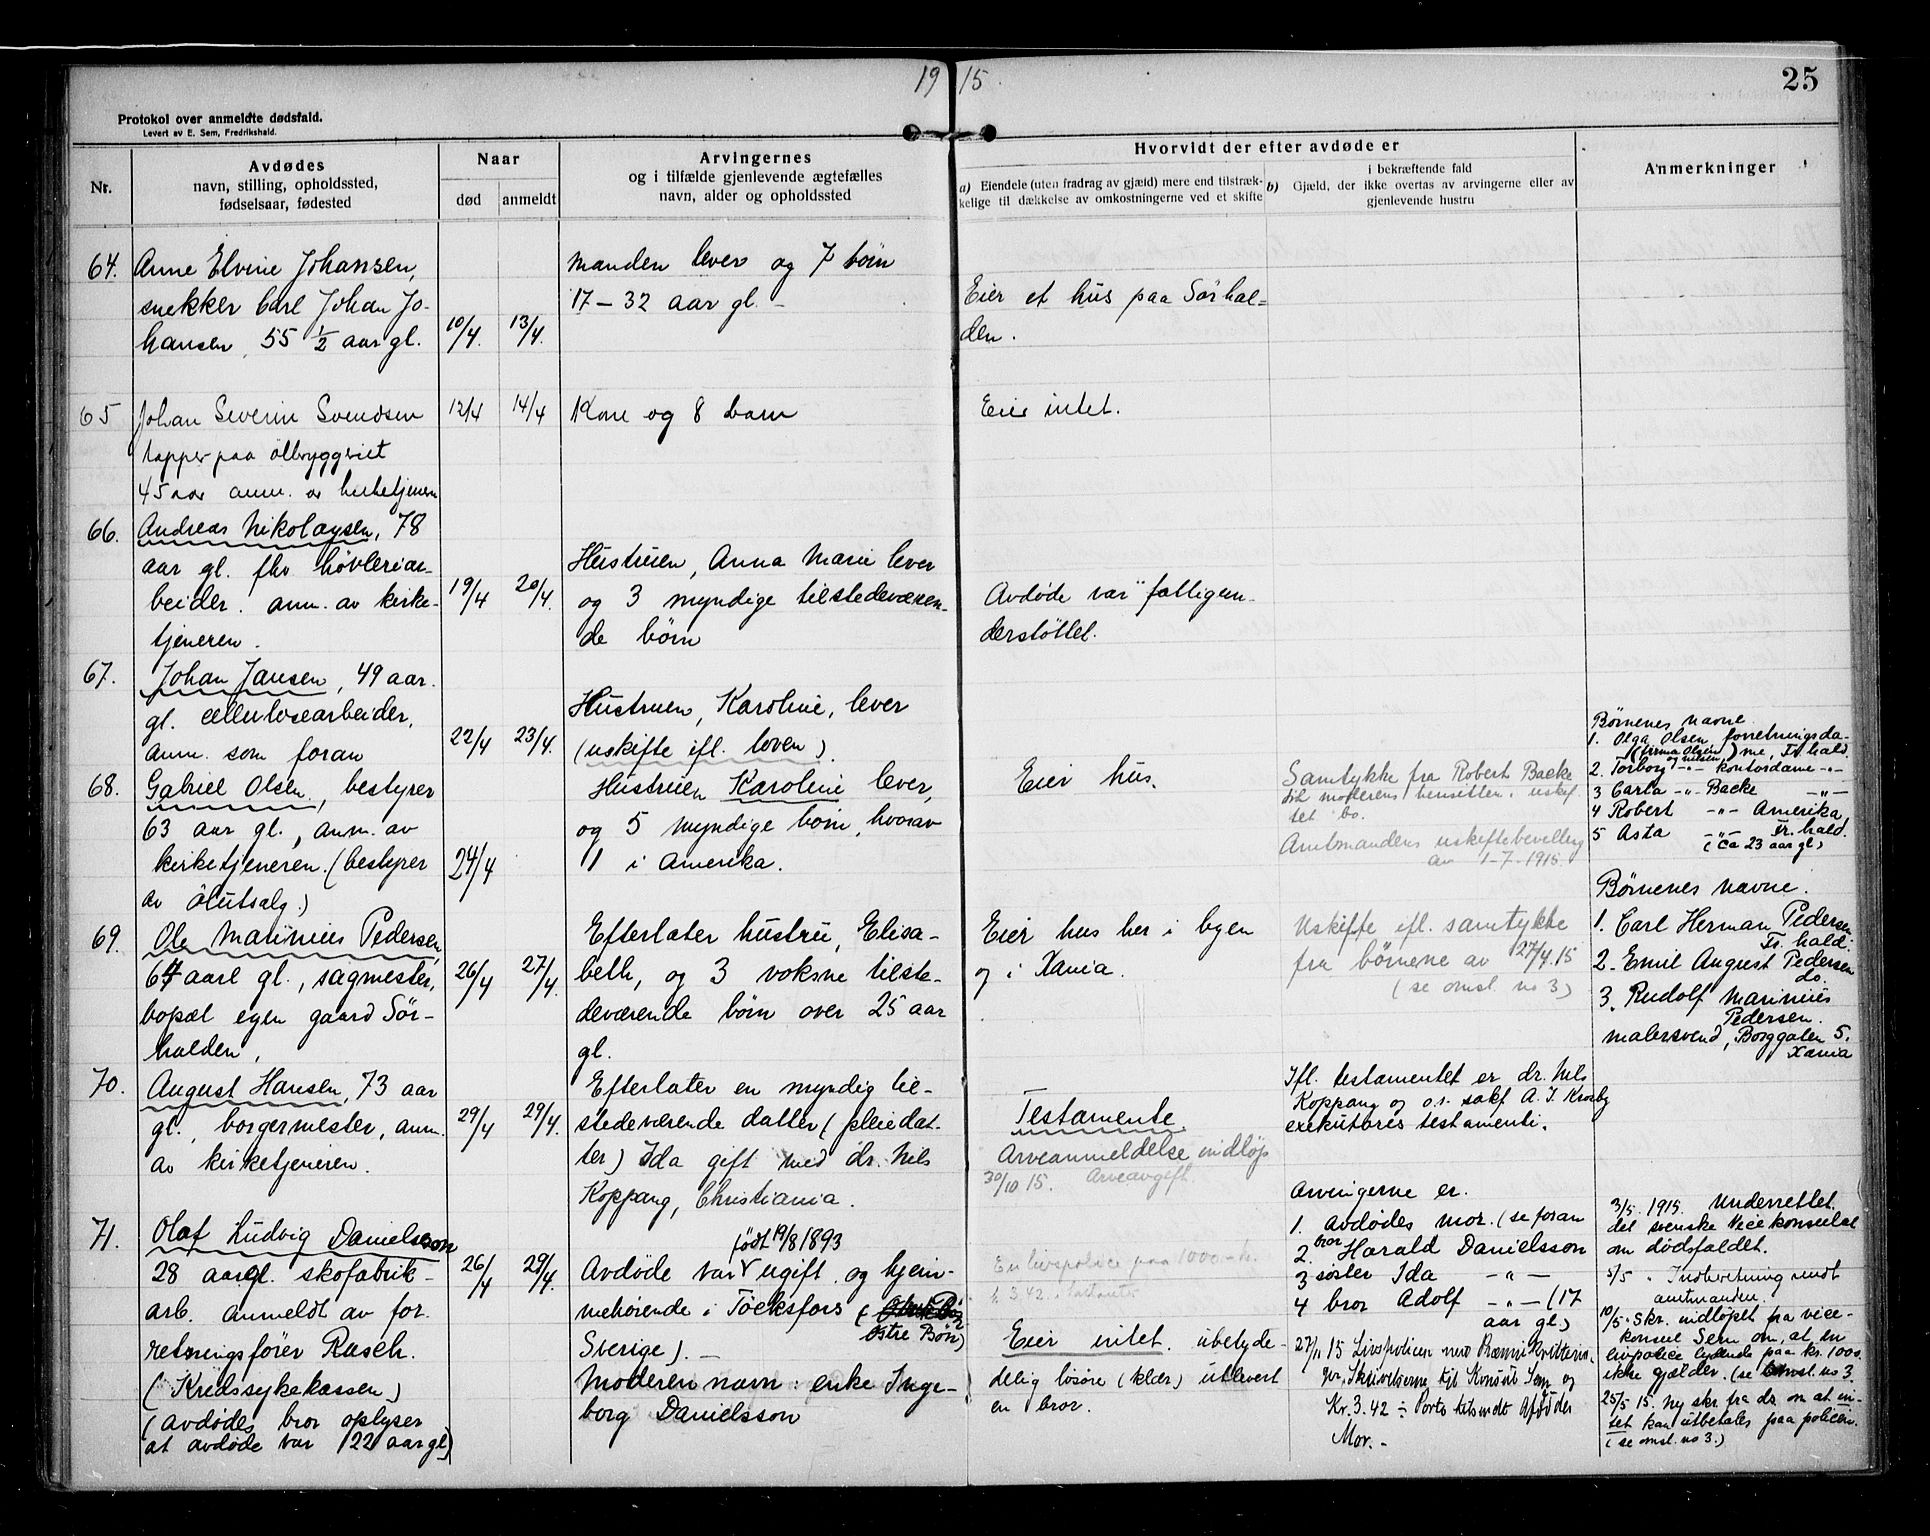 19 15.
25
Protokol over anmeldte dødsfald.
Levert av E. Sem, Fredrikshald.
Nr.
Avdødes
navn, stilling, opholdssted,
fødselsaar, fødested
Naar
død
anmeldt
Arvingernes
og i tilfælde gjenlevende ægtefælles
navn, alder og opholdssted
Hvorvidt der efter avdøde er
a) Eiendele (uten fradrag av gjæld) mere end tilstræk-
kelige til dækkelse av omkostningerne ved et skifte
b)
i bekræftende fald
Gjæld, der ikke overtas av arvingerne eller av
gjenlevende hustru
Anmerkninger
64.
Anne Elvine Johansen,
snekker Carl Johan Jo-
hansen, 55 1/2 aar gl.
10/4.
13/4.
Manden lever og 7 børn
17 - 32 aar gl. -
Eier et hus paa Sørhal=
den.
65
Johan Severin Svendsen
tapper paa ølbryggeriet
45 aar anm. av kirketjenern
12/4
14/4
Kone og 8 barn
Eier intet.
66.
Andreas Nikolaysen, 78
aar gl. fhv høvleriar-
beider. anm. av kirke-
tjeneren.
19/4
20/4.
Hustruen, Anna Marie lever
og 3 myndige tilstedeværen-
de børn
Avdøde var fattigun-
derstøttet.
67.
Johan Jansen, 49 aar.
gl. cellulosearbeider,
anm. som foran
22/4
23/4.
Hustruen, Karoline, lever
(uskifte ifl. loven).
68.
Gabriel Olsen, bestyrer
63 aar gl., anm. av
kirketjeneren. (bestyrer
av ølutsalg.)
24/4
Hustruen Karoline lever,
og 5 myndige børn, hvorav
1 i Amerika.
Eier hus.
Samtykke fra Robert Backe
til moderens hensitten i uskif
tet bo.
Amtmandens uskiftebevilling
av 1-7-1915.
Børnenes navne
1. Olga Olsen, forretningsda-
(firma Olsen og Nilsen) me, Fr.hald.
2. Torborg -"- kontordame -"-
3 Carla -"- Backe -"-
4 Robert -"- Amerika,
5 Asta -"- Fr. hald.
(ca 23 aar gl)
69.
Ole Marinius Pedersen,
64 aarl gl., sagmester,
bopæl egen gaard Sør-
halden,
26/4
27/4.
Efterlater hustru, Elisa-
beth, og 3 voksne tilste-
deværende børn over 25 aar
gl.
Eier hus her i byen
og i Xania.
Uskifte ifl. samtykke
fra børnene av 27/4.15
(se omsl. no 3)
Børnenes navne.
1. Carl Herman Pedersen
Fr. hald.
2. Emil August Pedersen
do.
3. Rudolf Marinius
Pedersen.
malersvend, Borggaten 5.
Xania
70.
August Hansen, 73 aar
gl., borgermester, anm.
av kirketjeneren.
29/4
29/4.
Efterlater en myndig til-
stedeværende datter (pleiedat-
ter) Ida gift med dr. Nils
Koppang, Christiania.
Testamente
Arveanmeldelse indløp
30/10 15. Arveavgift.
Ifl. testamentet er dr. Nils
Koppang og o.r. sakf A. I. Krosby
exekutores testamenti.
71.
Olaf Ludvig Danielsson
28 aar gl. skofabrik-
arb. Anmeldt av for.
retningsfører Rasch.
(Kredssykekassen)
(avdødes bror oplyser
at avdøde var 22 aar gl)
26/4
29/4.
født 19/8 1893
Avdøde var ugift og hjem-
mehørende i Töcksfors (
Østre Bön)
Sverige). -
Moderen navn: enke Inge-
borg Danielsson
En livspolice paa 1000 - k.
k 3.42. i
Eier intet. ubetyde-
delig løsøre (klær) utlevert
en bror.
Arvingerne er.
1. Avdødes mor. (se foran
2. bror Harald Danielsson
3 søster Ida -"-
4 bror Adolf -"- (17
aar gl)
27/11 15 Livspolicen med Præmiekvittering.
Skrivelserne til Konsul Sem og
Kr. 3.42 ÷ Porto tilsendt Afdødes
Mor. -
3/5. 1915. Underrettet.
det svenske Vicekonsulat
om dødsfaldet.
5/5 " Indberetning sendt
amtmanden.
10/5 " Skr. indløpet fra vice-
konsul Sem om, at en
livpolice lydende paa kr. 1000
ikke gjælder. (se omsl. no 3
25/5 15. ny skr. fra ds. om at in-
tet kan utbetales paa policen.
(se omsl. no 3.)